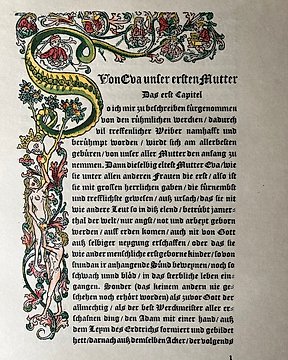 Von Eva unser ersten Mutter
Das erst Capitel
So ich mir zu beschreiben fürgenommen
von den rühmlichen wercken / dadurch
vil treffenlicher Weiber namhafft und
berühmpt worden / wirdt sich am allerbesten
gebüren / von unser aller Mutter den anfang zu
nemmen. Dann dieselbig eltest Mutter Eva / wie
sie unter allen andern Frauen die erst / also ist
sie mit grossen herrlichen gaben / die fürnembst
und trefflichste gewesen / auß ursach / das sie nit
wie andere Leut so in diß elend / betrübt jamer-
thal der welt / mit angst / not und arbeyt geborn
werden / auff erden komen / auch nit von Gott
auß selbiger neygung erschaffen / oder das sie
wie ander menschliche erstgeborne kinder / so von
stundan ir anhangende Sünd beweynen / noch so
schwach unnd blöd / in das sterbliche leben ein-
gangen. Sonder (das keinem andern nie ge-
schehen noch erhört worden) als zuvor Gott der
allmechtig / als der best Werckmeister aller er-
schaffnen ding / den Adam mit einer hand / auß
dem Leym des Erdtrichs formiert und gebildet
hett / darnach auß demselben Acker / der volgends